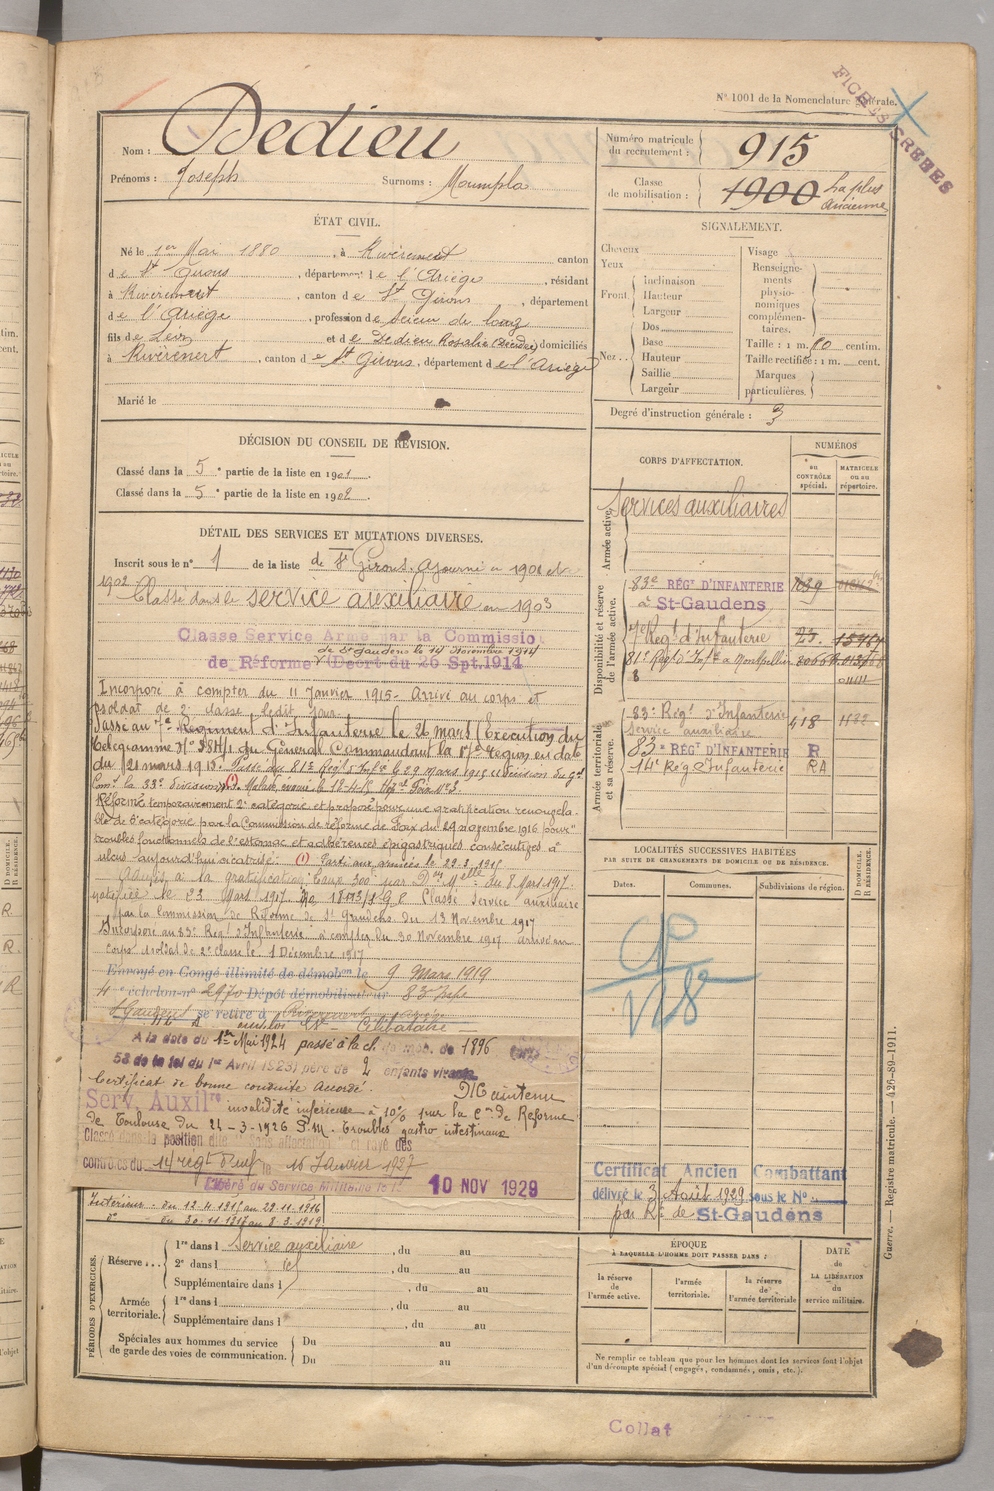 N° 1001 de la Nomenclature générale.
Nom : Dedieu
Prénoms : Joseph Surnoms : Moumpla
Numéro matricule du recrutement : 915
Classe de mobilisation : 1900 La plus ancienne
ÉTAT CIVIL.
Né le 1er Mai 1880, à Rivèrenert canton
de St Girons, département de l'Ariège, résidant
à Rivèrenert, canton de St Girons, département
de l'Ariège, profession de scieur de long
fils de Léon et de Dedieu Rosalie (décédée) domiciliés
à Rivèrenert, canton de St Girons, département de l'Ariège
Marié le
SIGNALEMENT.
Cheveux
Yeux
Front
Inclinaison
Hauteur
Largeur
Nez
Dos
Base
Hauteur
Saillie
Largeur
Visage
Renseignements physionomiques complémentaires.
Taille : 1 m. 60 centim.
Taille rectifiée : 1 m. cent.
Marques particulières.
Degré d'instruction générale : 3
DÉCISION DU CONSEIL DE RÉVISION.
Classé dans la 5e partie de la liste en 1901
Classé dans la 5e partie de la liste en 1902
DÉTAIL DES SERVICES ET MUTATIONS DIVERSES.
Inscrit sous le n° 1 de la liste de St Girons. Ajourné en 1901 et
1902 Classé dans le service auxiliaire en 1903
Classe Service Armé par la Commissio
de St Gaudens le 14 Novembre 1914
de Réforme (Décret du 26 Spt.1914
Incorporé à compter du 11 Janvier 1915 - Arrivé au corps et
soldat de 2e classe ledit jour
Passé au 7e Régiment d'Infanterie le 26 mars (Execution du
télégramme N° du Général Commandant la 17e région en date
du 21 mars 1915. Passé au 81e Régt d'Infie le 29 mars 1915 (Décision du Gal
Comt la 33e division) (1) Malade, évacué le 12-4-15
Réformé temporairement 2e catégorie et proposé pour une gratification renouvela-
ble de 8e catégorie par la Commission de réforme de Foix du 29 novembre 1916 pour "
troubles fonctionnels de l'estomac et adhérences épigastriques consécutives à
ulcus aujourd'hui cicatrisé. (1) Parti aux armées le 22.3.1915
Admis à la gratification Taux 300f par Don Melle du 8 Mars 1917.
notifiée le 23 Mars 1917. Classé Service auxiliaire
par la Commission de Réforme de St Girons du 13 Novembre 1917
Incorporé au 83e Régt d'Infanterie à compter du 30 Novembre 1917 arrivé au
corps et soldat de 2e classe le 1 Décembre 1917
Envoyé en Congé illimité de démobon le 9 Mars 1919
4e échelon n° 2970 Dépôt démobilisateur 83e Infie
St Gaudens se retire à Rivèrenert
Célibataire
A la date du 1er Mai 1924 passé à la cl. de mob. de 1896
58 de la loi du 1er Avril 1923) père de 2 enfants vivants.
Certificat de bonne conduite Accordé.
Maintenu
Serv. Auxilre invalidité inférieure à 10% par la Con de Réforme
de Toulouse du 24-3-1926 P.M. Troubles gastro intestinaux
Classé dans la position dite sans affectation et rayé des
contrôles du 14e régt d'Inf le 15 Janvier 1927
Libéré du Service Militaire le 10 NOV 1929
Intérieur - du 12.4.1915 au 29.11.1916
d° du 30.11.1917 au 8.3.1919
CORPS D'AFFECTATION.
NUMÉROS
au CONTRÔLE spécial.
MATRICULE ou au répertoire.
Armée active.
Services auxiliaires
Disponibilité et réserve de l'armée active.
83e RÉGt D'INFANTERIE
à St-Gaudens
7e Régt d'Infanterie 23.
81e Régt d'Infie à Montpellier
Armée territoriale et sa réserve.
83e Régt d'Infanterie 418 1132
Service auxiliaire
83e RÉGt D'INFANTERIE R
14e Rég d'Infanterie RA
LOCALITÉS SUCCESSIVES HABITÉES
PAR SUITE DE CHANGEMENTS DE DOMICILE OU DE RÉSIDENCE.
Dates. Communes. Subdivisions de région.
D DOMICILE.
R RÉSIDENCE.
Certificat Ancien Combattant
délivré le 3 Août 1929 sous le N°
par Rt de St-Gaudens
PÉRIODES D'EXERCICES.
Réserve
1re dans l Service auxiliaire, du au
2e dans l id, du au
Supplémentaire dans l, du au
Armée territoriale.
1re dans l, du au
Supplémentaire dans l, du au
Spéciales aux hommes du service de garde des voies de communication.
Du au
Du au
ÉPOQUE
À LAQUELLE L'HOMME DOIT PASSER DANS :
la réserve de l'armée active.
l'armée territoriale.
la réserve de l'armée territoriale
DATE de LA LIBÉRATION du service militaire.
Ne remplir ce tableau que pour les hommes dont les services font l'objet
d'un décompte spécial (engagés, condamnés, omis, etc.).
Guerre. — Registre matricule. — 426-89-1911.
Collat